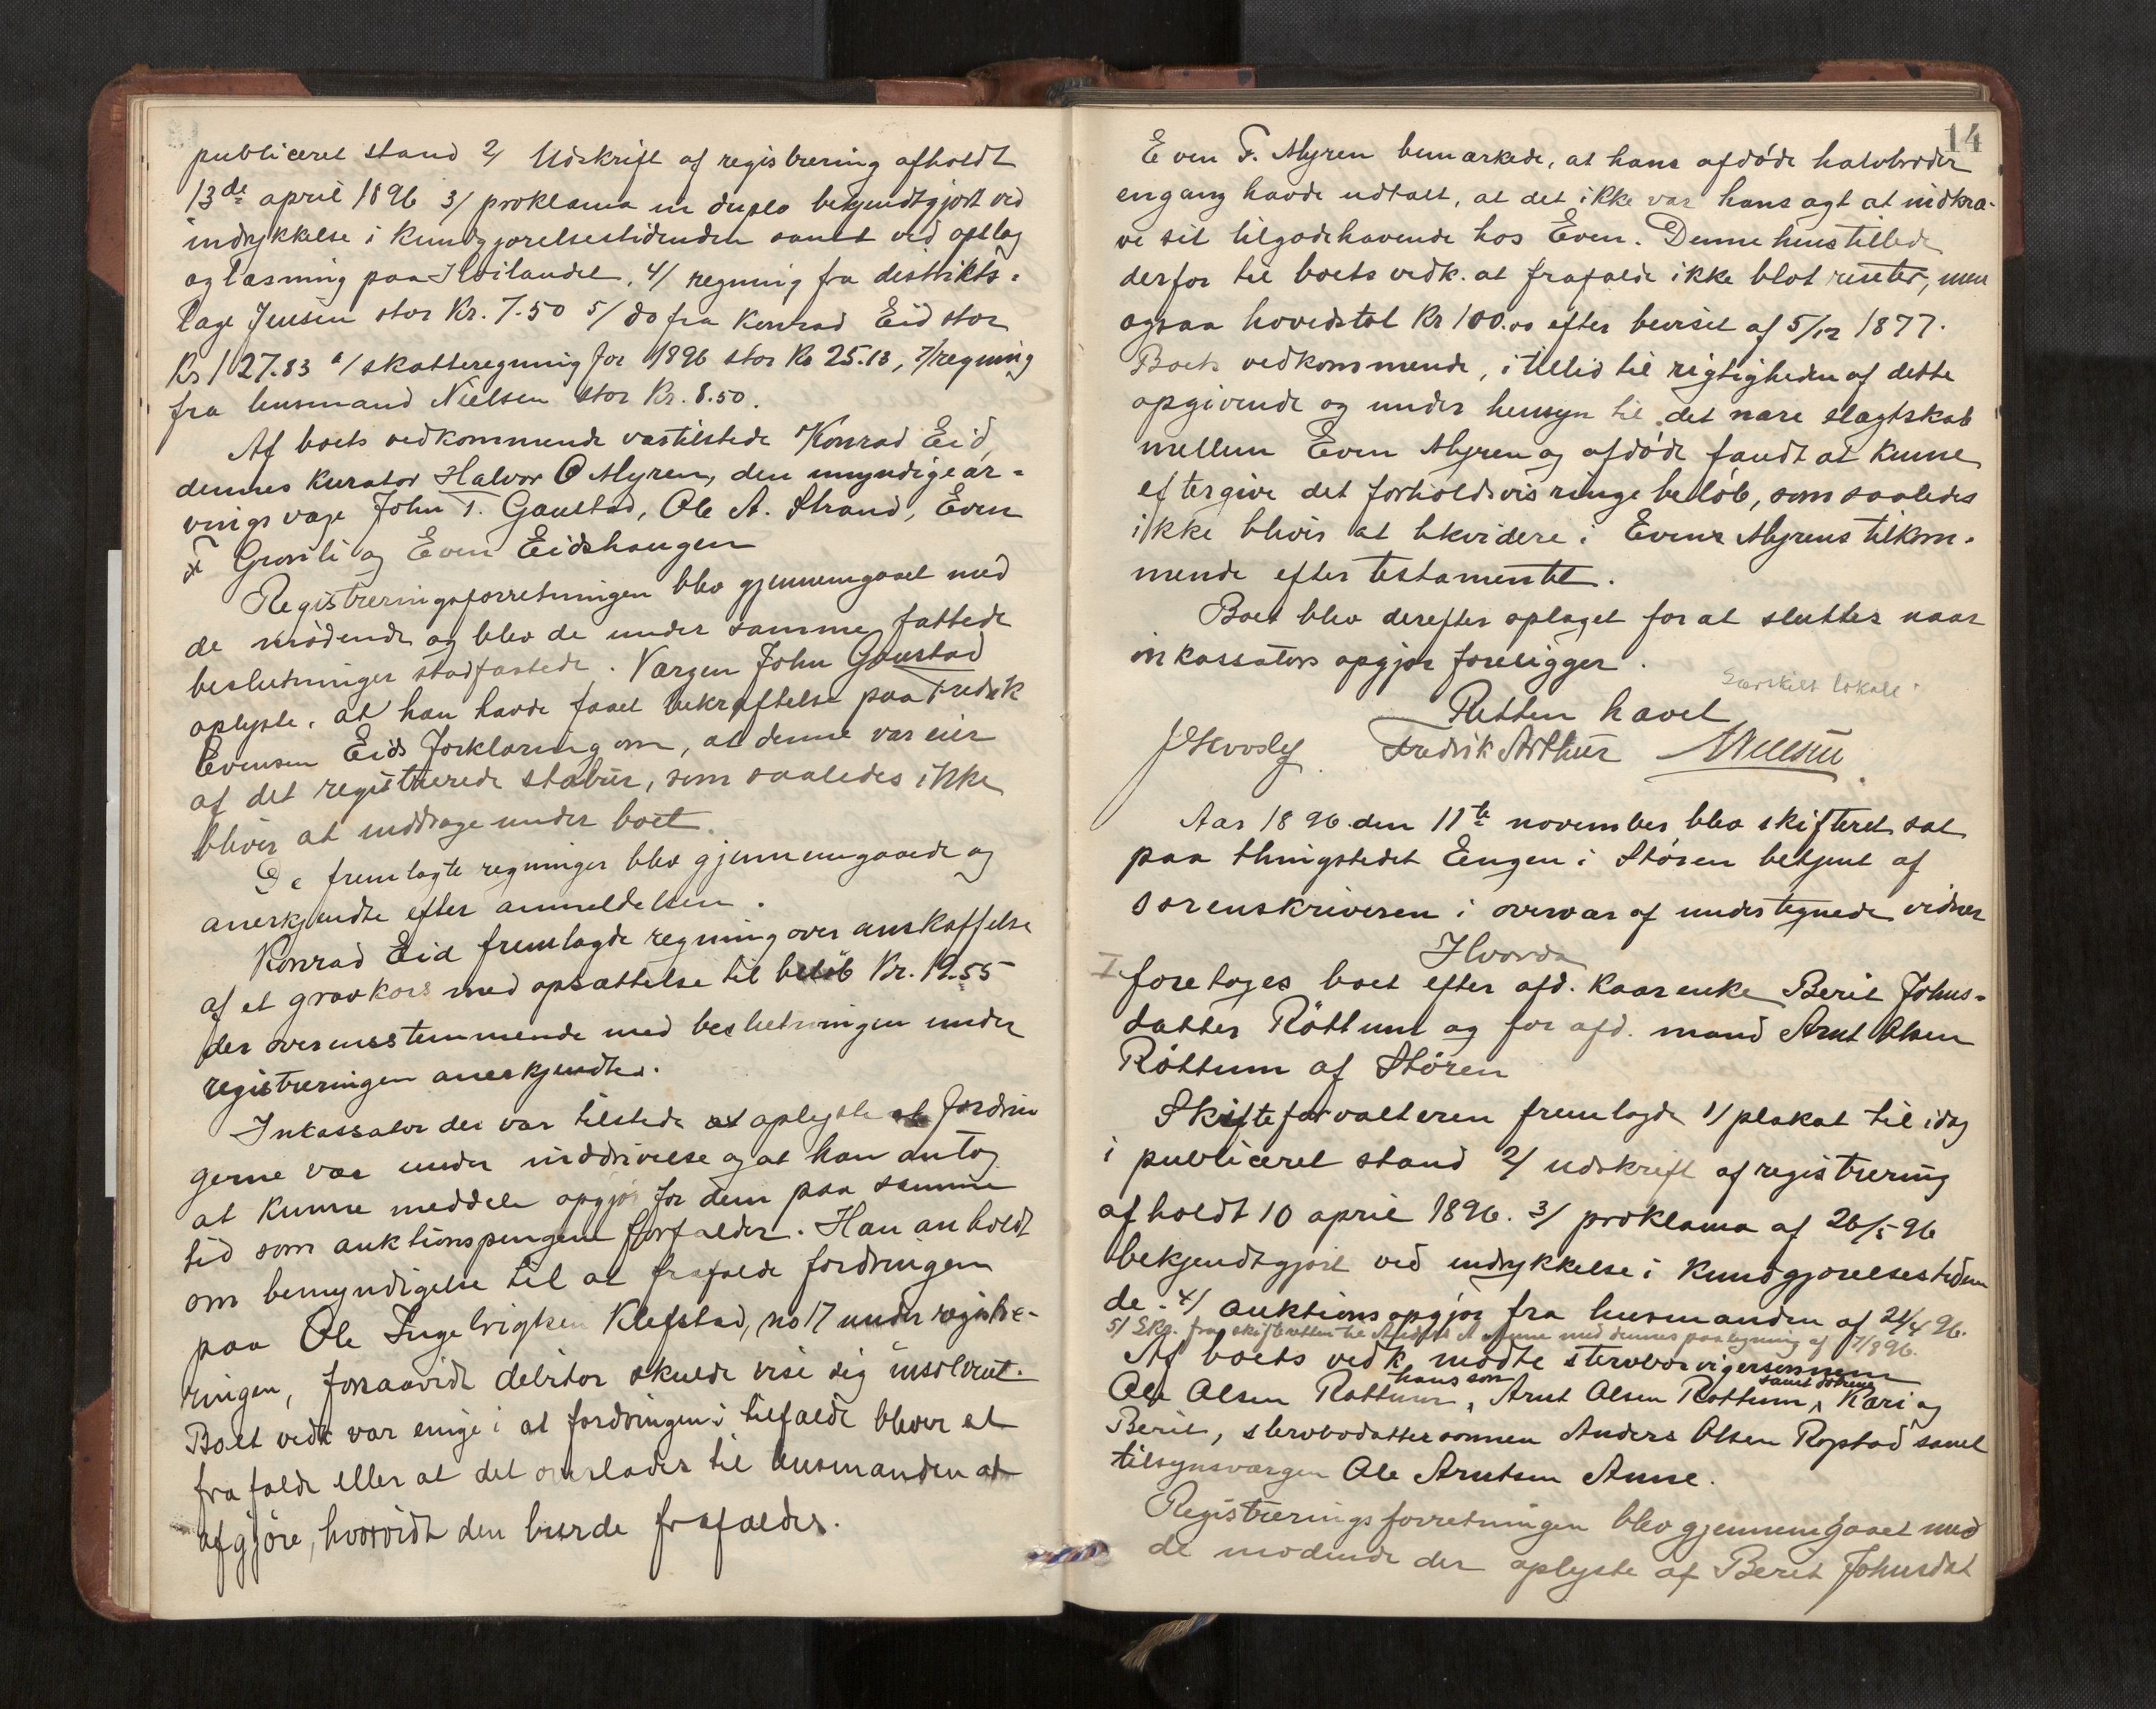 publiceret stand 2/ Udskrift af registrering afholdt
13de april 1896 3/ proklama in duplo bekjendtgjort ved
indrykkelse i kundgjørelsestidenden samt ved opslag
og læsning paa Høilandet, 4/ regning fra distrikts-
læge Jensen stor Kr. 7.50 5/ do fra Konrad Eid stor
Kr 127.83 6/ skatteregning for 1896 stor Kr 25.13, 7/ regning
fra lensmand Nielsen stor Kr. 8.50.
Af boets vedkommende var tilstede Konrad Eid,
dennes kurator Halvor O Myren, den umyndige ar-
vings værge John T. Gaustad, Ole A. Strand, Even
F Gronli og Even Eidshaugen
Registreringsforretningen blev gjennemgaaet med
de mødende og blev de under samme fattede
beslutninger stadfæstede. Værgen John Gaustad
oplyste, at han havde faaet bekræftelse paa Fredrik
Evensen Eids forklaring om, at denne var eier
af det registrerede stabur, som saaledes ikke
bliver at inddrage under boet.
De fremlagte regninger blev gjennemgaaede og
anerkjendte efter anmeldelsen.
Konrad Eid fremlagde regning over anskaffelse
af et gravkors med opsættelse til beløb Kr. 19.55
der overensstemmende med beslutningen under
registreringen anerkjendtes.
Inkassator der var tilstede oplyste at fordrin
gerne var under inddrivelse og at han antog
at kunne meddele opgjør for dem paa samme
tid som auktionspengene forfalder. Han anholdt
om bemyndigelse til at frafalde fordringen
paa Ole Ingebrigtsen Klefstad, no 17 under registre-
ringen, forsaavidt debitor skulde vise sig insolvent.
Boet vedk var enige i at fordringen i tilfælde bliver at
frafalde eller at det overlades til lensmanden at
afgjøre, hvorvidt den burde frafaldes.
14
Even F. Myren bemærkede, at hans afdøde halvbroder
engang havde udtalt, at det ikke var hans agt at indkræ-
ve sit tilgodehavende hos Even. Denne henstillede
derfor til boets vedk. at frafalde ikke blot renter, men
ogsaa hovedstol Kr 100.00 efter beviset af 5/12 1877.
Boets vedkommende, i tillid til rigtigheden af dette
opgivende og under hensyn til det nære slægtskab
mellem Even Myren og afdøde fandt at kunne
eftergive det forholdsvis ringe beløb, som saaledes
ikke bliver at likvidere i Evens Myrens tilkom-
mende efter testamentet.
Boet blev derefter optaget for at sluttes naar
inkassators opgjør foreligger.
Særskilt lokale
Retten hævet
Fredrik Arthur Nielsen
Aar 1896 den 11te november blev skifteret sat
paa thingstedet Engen i Støren betjent af
sorenskriveren i overvær af undertegnede vidner
Hvorda
I foretoges boet efter afd. kaarenke Berit Johns-
datter Röttum og før afd. mand Arnt Olsen
Röttum af Støren
Skifteforvalteren fremlagde 1/ plakat til idag
i publiceret stand 2/ udskrift af registrering
afholdt 10 april 1896. 3/ proklama af 26/5 96
bekjendtgjort ved indrykkelse i kundgjørelsestiden
de. 4/ auktionsopgjør fra lensmanden af 24/4 96.
5/ Skr. fra skifteretten til med dennes paategning af 7/8 96.
Af boets vedk. mødte stervbosvigersønnen
Ole Olsen Rottum, hans søn Arnt Olsen Rottum, samt døtrene Kari og
Berit, stervbodattersønnen Anders Olsen Ropstad samt
tilsynsværgen Ole Arntsen Anne.
Registreringsforretningen blev gjennemgaaet med
de mødende der oplyste at Berit Johnsdat